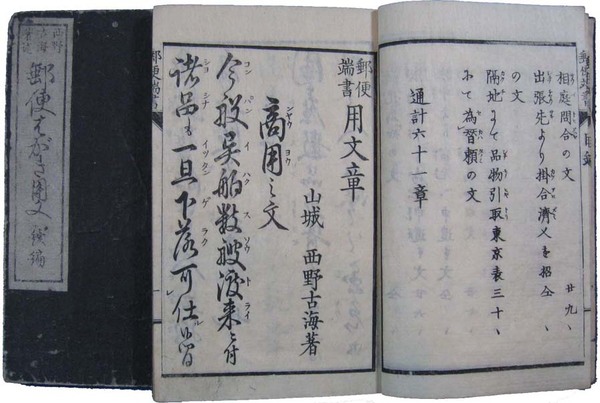 相庭問合の文 廿九丶
出張先より掛合濟
の文
隔地にて品物引取東京表三十丶
にて為替頼の文
通計六十一章
郵便端書 用文章
山城 西野古海著
商用之文
今般異船数艘渡来ニ付
諸品も一旦下落可仕候
郵便端書
西野古海
郵便はがき用文